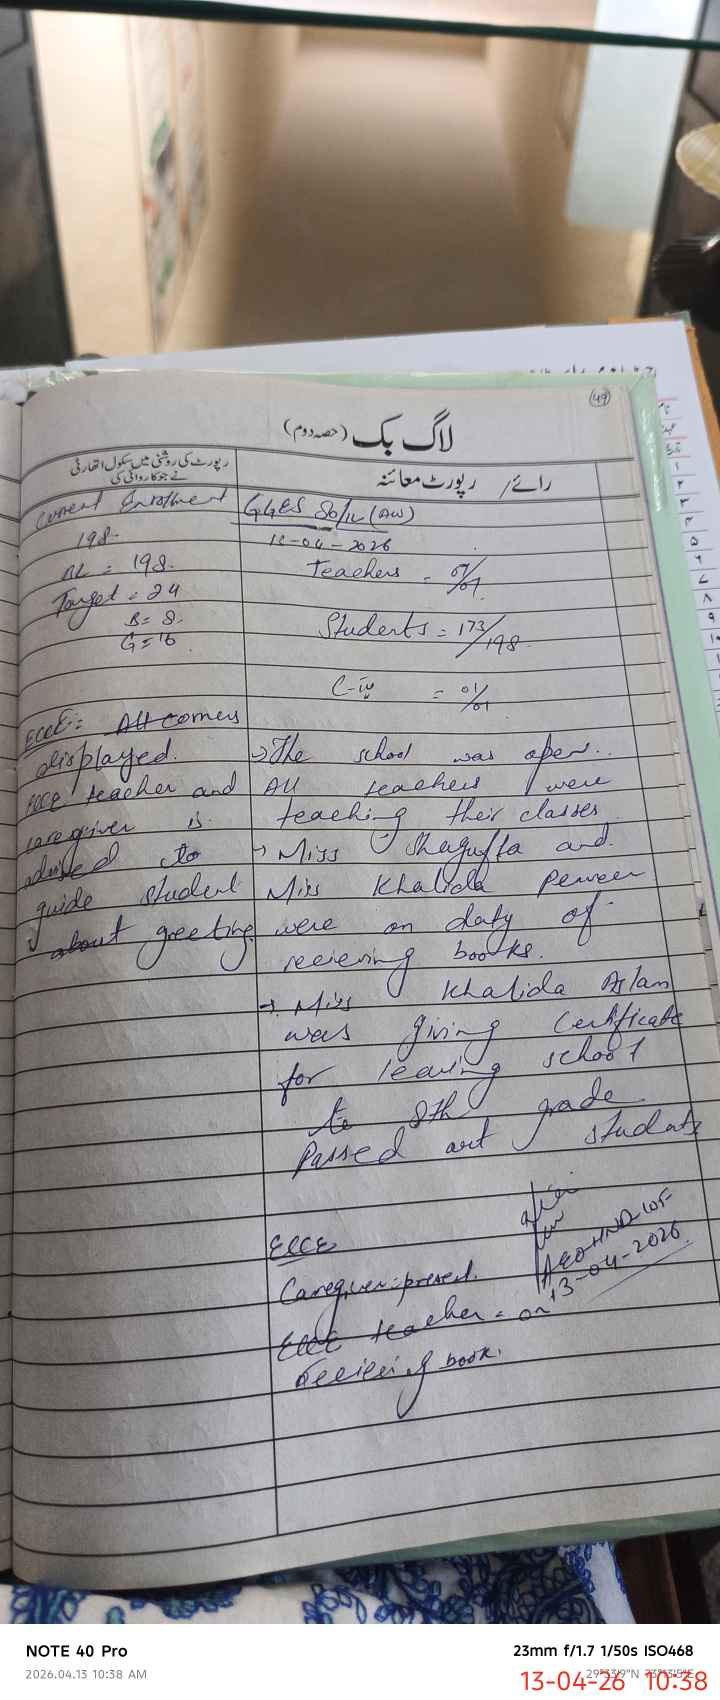 49
لاگ بک (حصہ دوم)
رپورٹ کی روشنی میں سکول اتھارٹی
نے جو کاروائی کی
رائے / رپورٹ معائنہ
Current Enrollment
198-
= 198.
Target = 24
B = 8.
G = 16
ECCE: All corners
displayed.
ECCE teacher and
caregiver is
advised to
guide student
about greeting
GGES (AW)
-04-2026
Teachers = 07/07
Students = 173/198
C-iv = 01/01
→ The school was open..
All teachers were
teaching their classes.
→ Miss Shagufta and
Miss Khalida Perveen
were on duty of
recieving books.
→ Miss Khalida Aslam
was giving Certificate
for leaving school
to 8th grade
Passed out students
ECCE
Caregiver: present.
ECCE teacher = on
recieving book.
AEO
13-04-2026.
NOTE 40 Pro
2026.04.13 10:38 AM
23mm f/1.7 1/50s ISO468
13-04-26 10:38